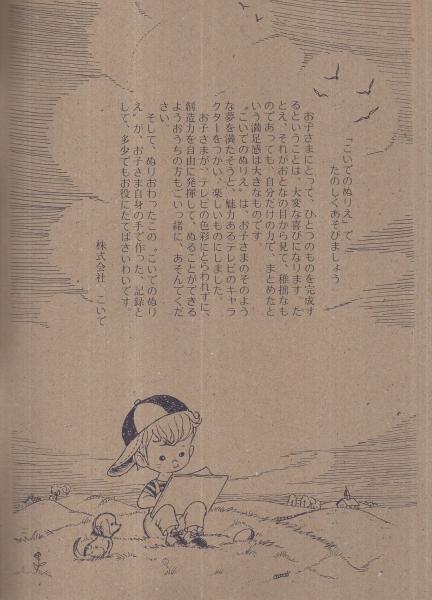 「こいでのぬりえ」で
たのしくあそびましょう
お子さまにとって、ひとつのものを完成す
るということは、大変な喜びになります。た
とえ、それがおとなの目から見て、稚拙なも
のであっても、自分だけの力で、まとめたと
いう満足感は大きなものです。
〝こいでのぬりえ〟は、お子さまのそのよう
な夢を満たそうと、魅力あるテレビのキャラ
クターをつかい、楽しいものにしました。
お子さまが、テレビの色彩にとらわれずに、
創造力を自由に発揮して、ぬることができる
ようおうちの方もごいっ緒に、あそんでくだ
さい。
そして、ぬりおわったこの〝こいでのぬり
え〟が、お子さま自身の手で作った、記録と
して、多少でもお役にたてばさいわいです。
株式会社 こいで